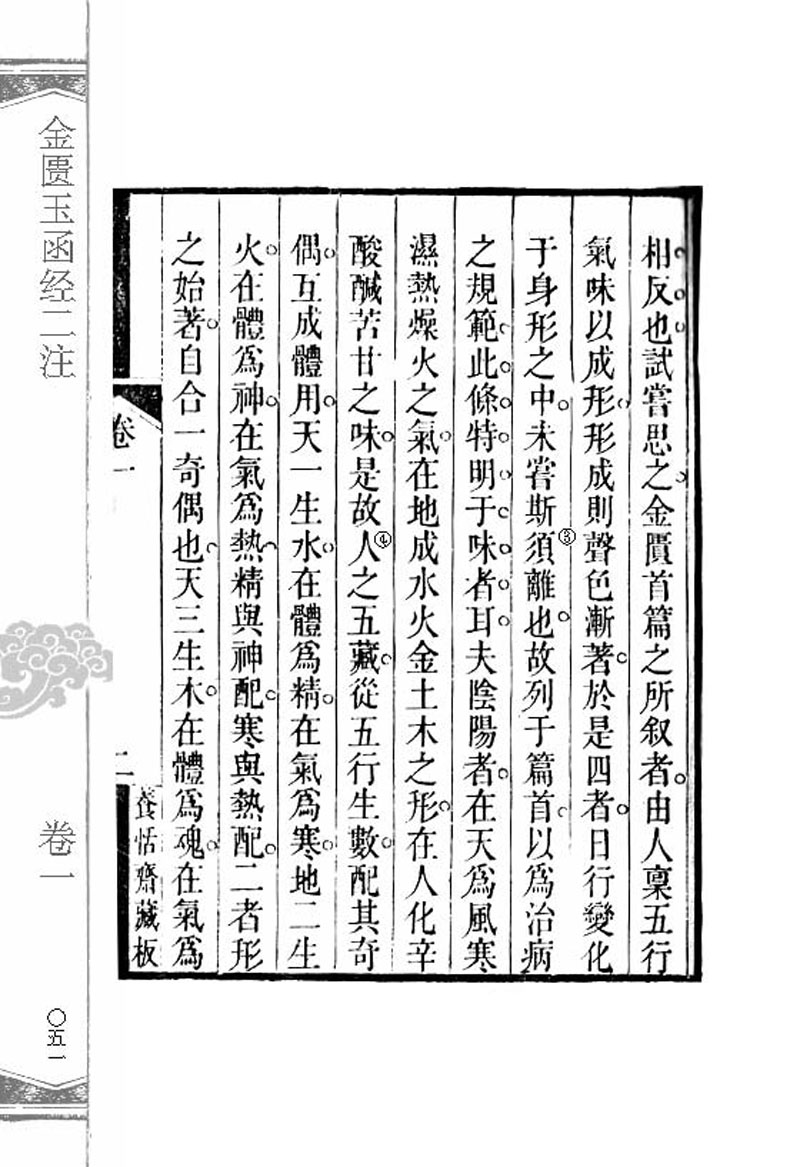 相反也試嘗思之金匱首篇之所叙者由人稟五行
氣味以成形形成則聲色漸著於是四者日行變化
于身形之中未嘗斯須③離也故列于篇首以為治病
之規範此條特明于味者耳夫陰陽者在天為風寒
濕熱燥火之氣在地成水火金土木之形在人化辛
酸鹹苦甘之味是故人④之五藏從五行生數配其奇
偶互成體用天一生水在體為精在氣為寒地二生
火在體為神在氣為熱精與神配寒與熱配二者形
之始著自合一奇偶也天三生木在體為魂在氣為
卷一
二
養恬齋藏板
金匮玉函经二注
卷一
〇五一